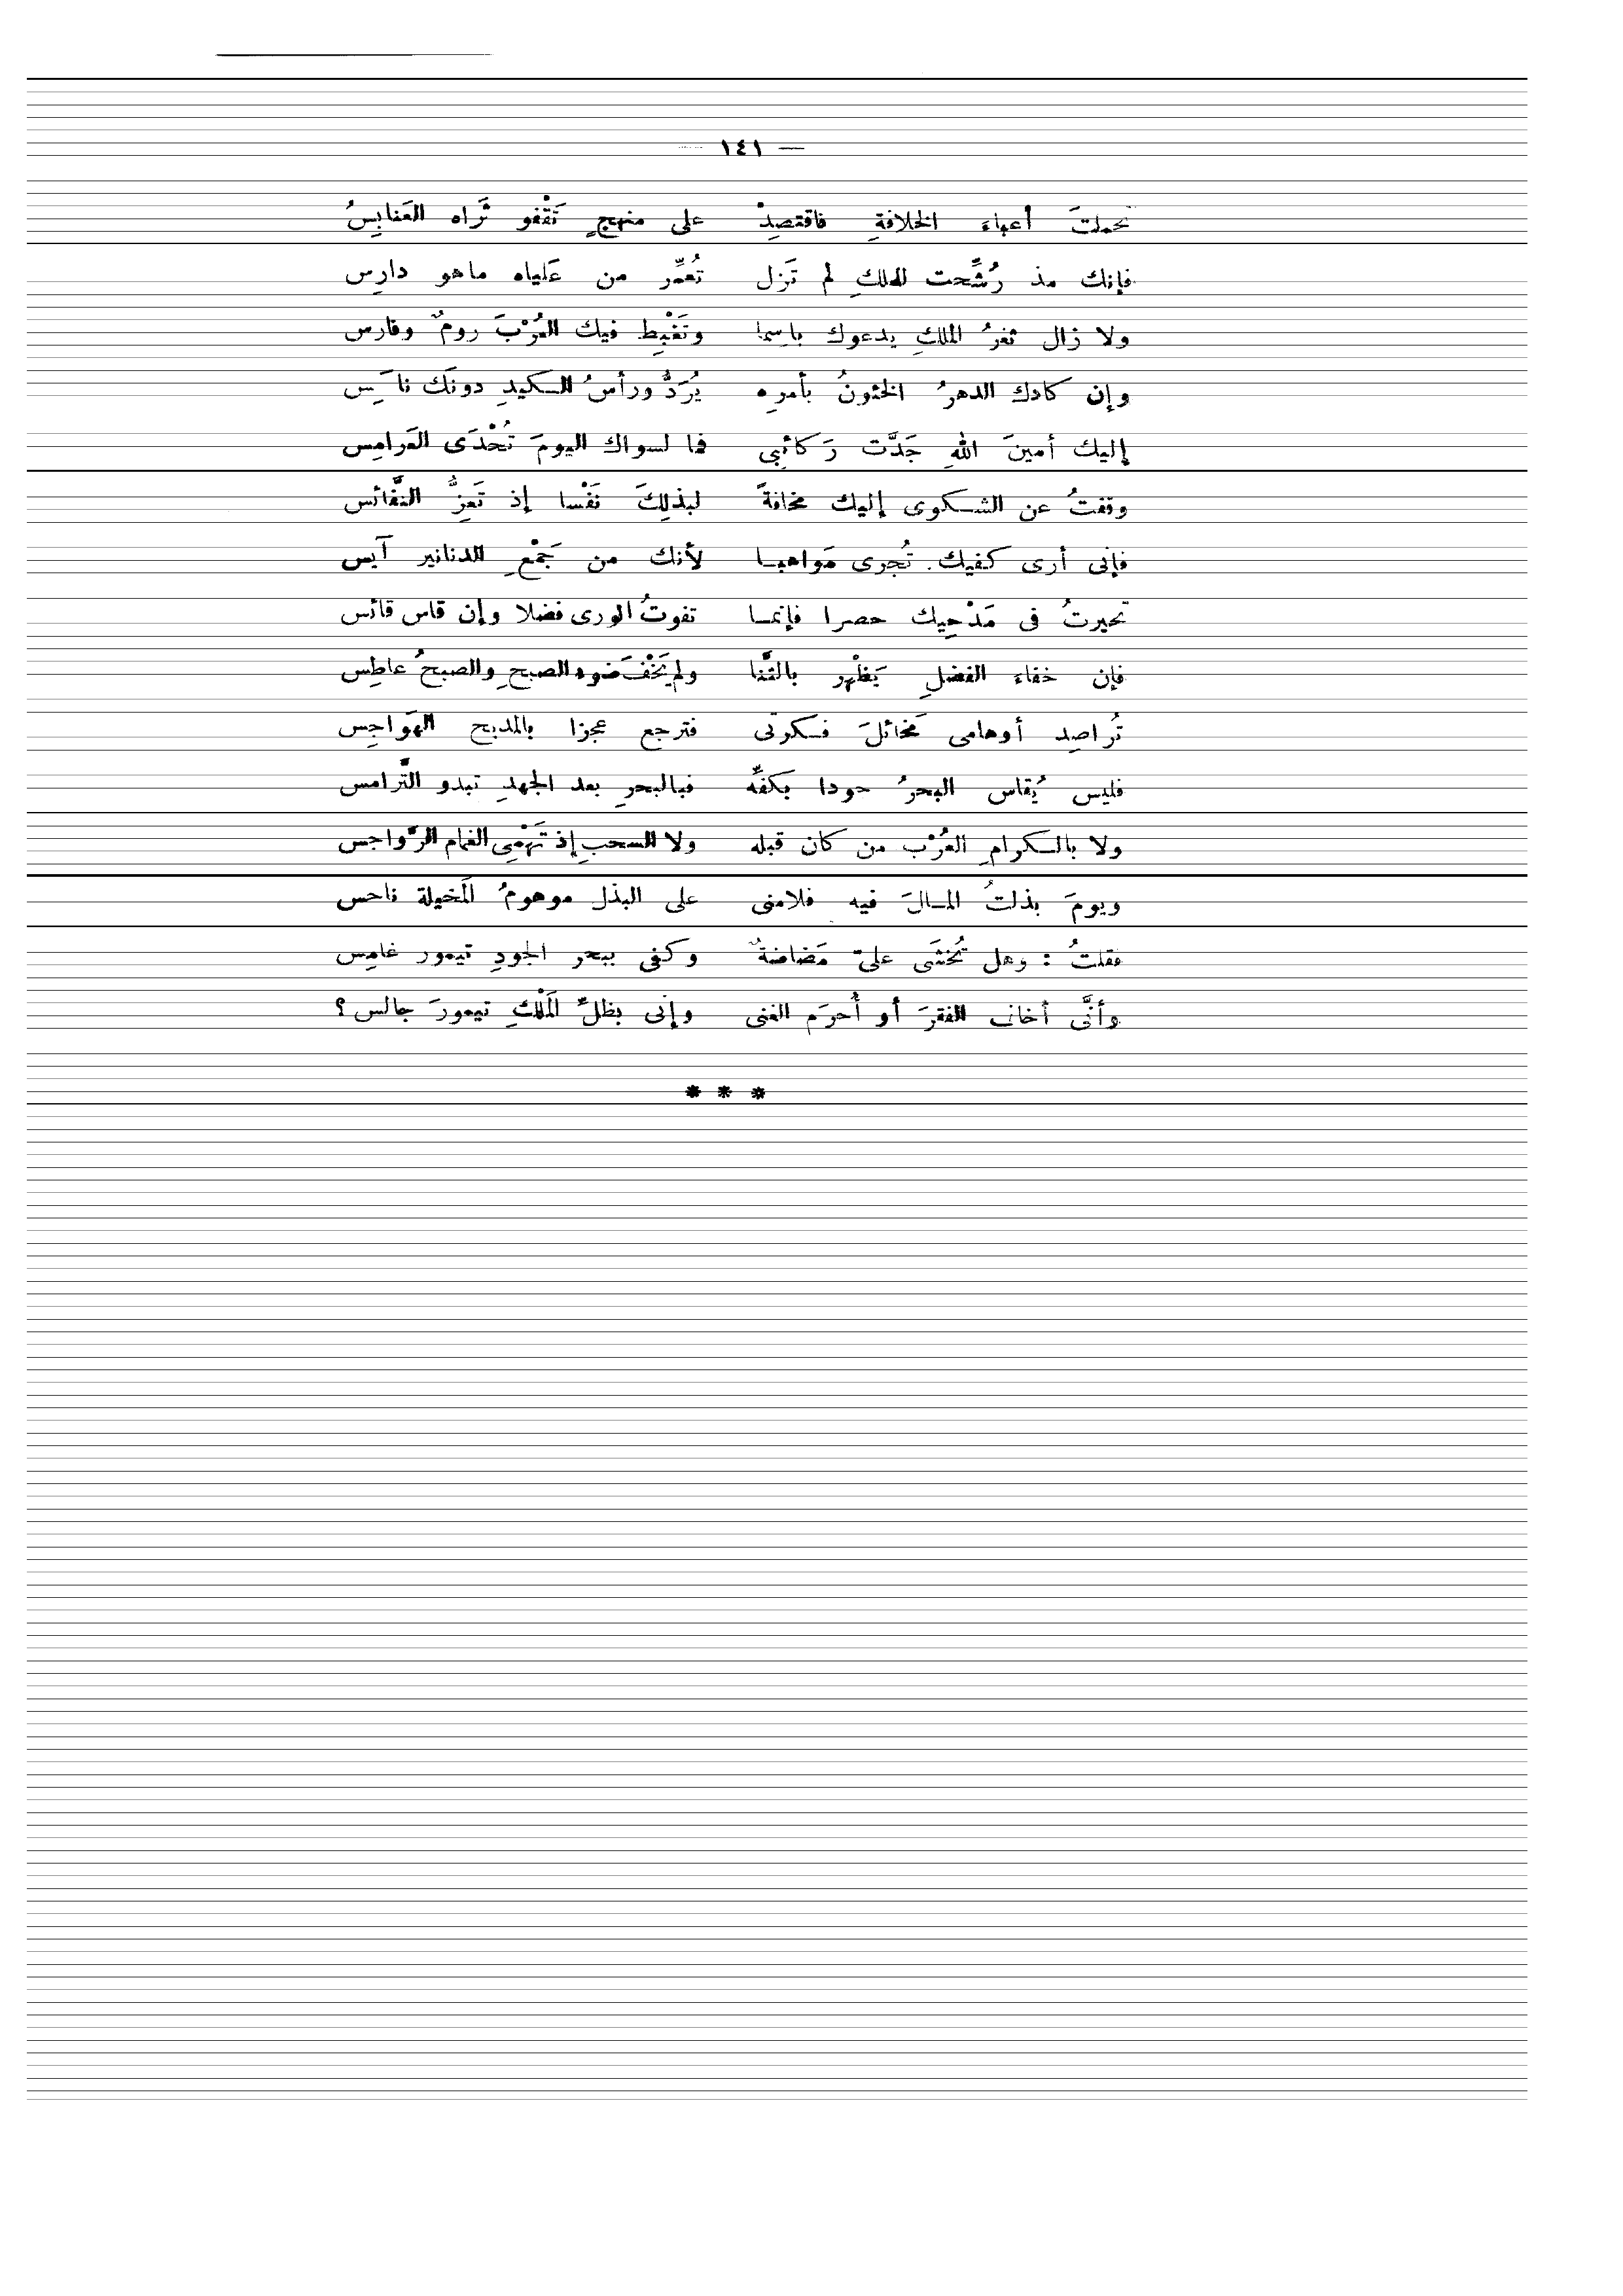 — ١٤١ —
تحملتَ أعباءَ الخلافةِ فاقتصدْ على منهجٍ تَقْفو ثَراه العَنابِسُ
فإنك مذ رُشِّحت للملكِ لم تَزل تُعمِّر من عَلياه ماهو دارِس
ولا زال ثغرُ الملكِ يدعوك باسِما وتَغْبِط فيك العُرْبَ رومٌ وفارس
وإن كادك الدهرُ الخئونُ بأمرِه يُرَدُّ ورأسُ الكيدِ دونَك ناكِس
إليك أمينَ اللهِ جَدَّت رَكائبِي فما لسواك اليومَ تُحْدَى العَرامِس
وقفتُ عن الشكوى إليك مخافةً لبذلِكَ نَفْسا إذ تَعزُّ النَّفائس
فإنى أرى كفيك تُجرى مَواهبا لأنك من جَمْعِ الدنانير آيس
تحيرتُ فى مَدْحِيك حصرا فإنما تفوتُ الورى فضلا وإن قاس قائس
فإن خفاءَ الفضلِ يَظْهر بالثَّنا ولم يَخْفَ ضوء الصبحِ والصبحُ عاطِس
تُراصِد أوهامى مَخائلَ فكرتى فترجع عجزا بالمديح الهَواجِس
فليس يُقاس البحرُ جودا بكفِّه فبالبحرِ بعد الجهدِ تبدو التَّرامس
ولا بالكرامِ العُرْب من كان قبله ولا السحبِ إذ تَهْمِى الغمام الرَّواجس
ويومَ بذلتُ المالَ فيه فلامنى على البذل موهومُ المَخيلة ناحس
فقلتُ : وهل تُخشَى علىّ مَضاضةٌ وكفى ببحر الجودِ تيمور غامِس
وأنَّى أخاف الفقرَ أو أُحرَم الغنى وإنى بظلِّ المَلْكِ تيمورَ جالس ؟
* * *